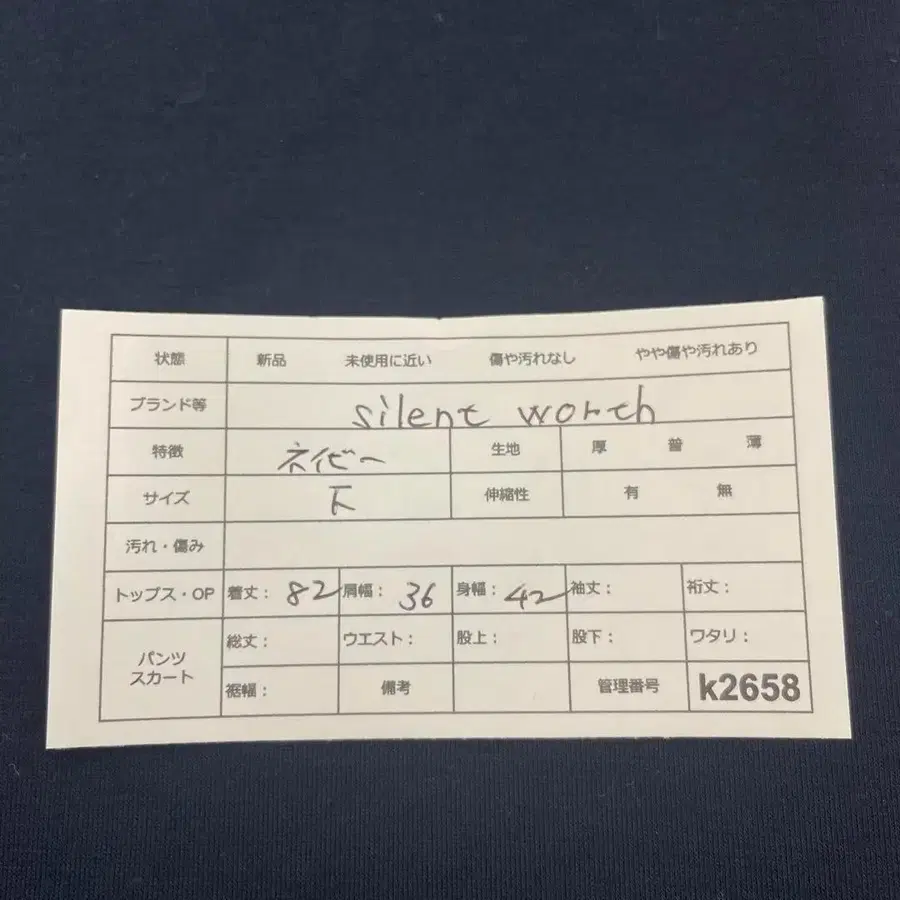 状態 新品 未使用に近い 傷や汚れなし やや傷や汚れあり
ブランド等 silent worth
特徴 ネイビー 生地 厚 普 薄
サイズ 下 伸縮性 有 無
汚れ・傷み
トップス・OP 着丈： 82 肩幅： 36 身幅： 42 袖丈： 裄丈：
パンツ
スカート
総丈： ウエスト： 股上： 股下： ワタリ：
裾幅： 備考 管理番号 k2658